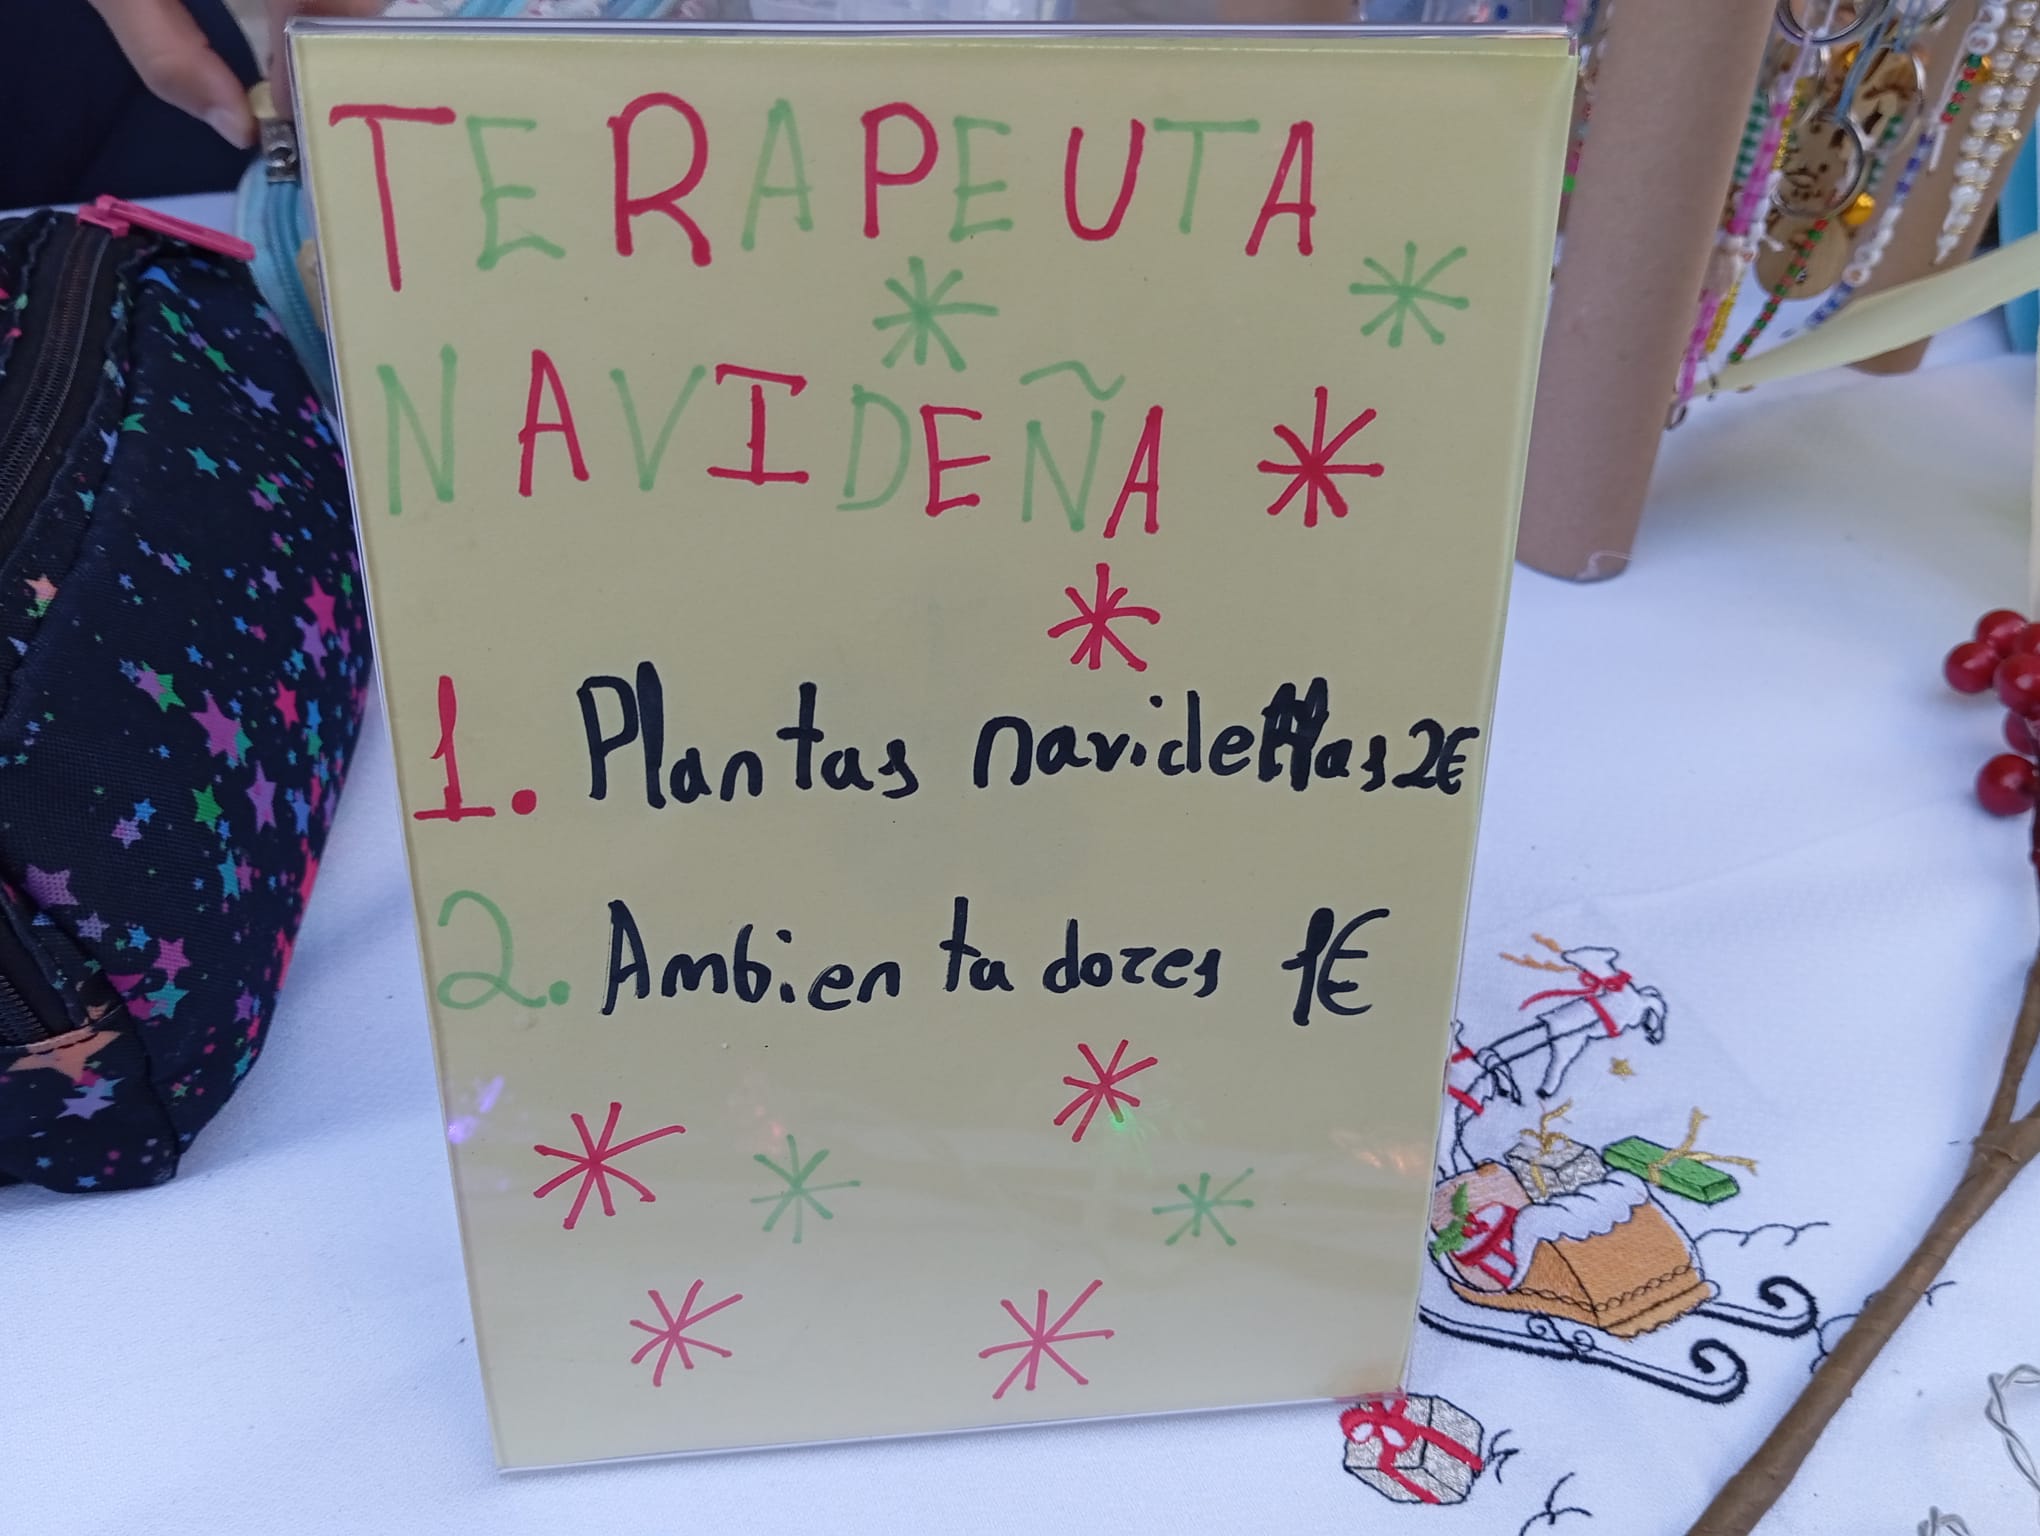 TERAPEUTA
NAVIDEÑA
1. Plantas navideñas 2€
2. Ambientadores 1€